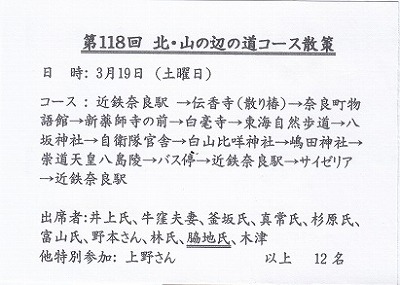 第118回 北・山の辺の道コース散策
日 時: 3月19日 (土曜日)
コース : 近鉄奈良駅 →伝香寺(散り椿)→奈良町物
語館→新薬師寺の前→白毫寺→東海自然歩道→八
坂神社→自衛隊官舎→白山比咩神社→嶋田神社→
崇道天皇八島陵→バス停→近鉄奈良駅→サイゼリア
→近鉄奈良駅
出席者:井上氏、牛窪夫妻、釜坂氏、真常氏、杉原氏、
富山氏、野本さん、林氏、脇地氏、木津
他特別参加: 上野さん 以上 12名